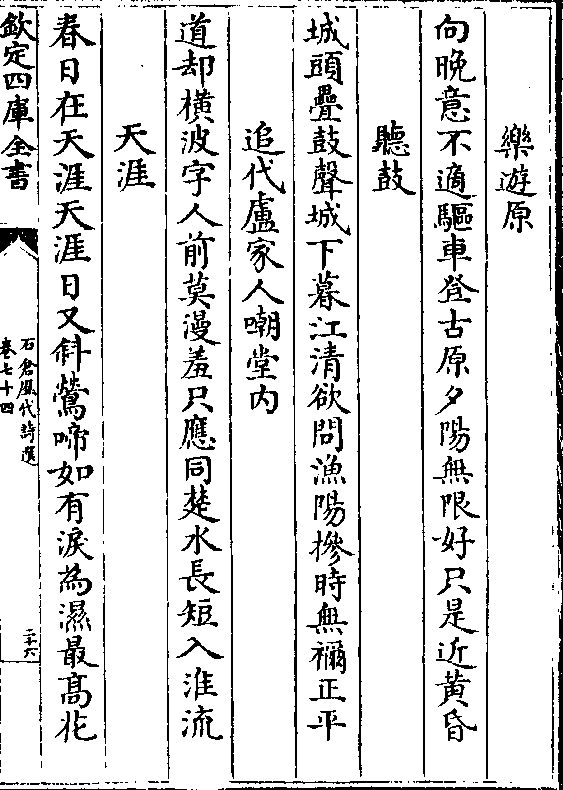 樂遊原
向晚意不適驅車登古原夕陽無限好只是近黃昏
聽鼓
城頭疊鼓聲城下暮江清欲問漁陽摻時無禰正平
追代盧家人嘲堂内
道却橫波字人前莫漫羞只應同楚水長短入淮流
天涯
春日在天涯天涯日又斜鶯啼如有淚為濕最高花
欽定四庫全書
石倉歷代詩選
卷七十四
二十六